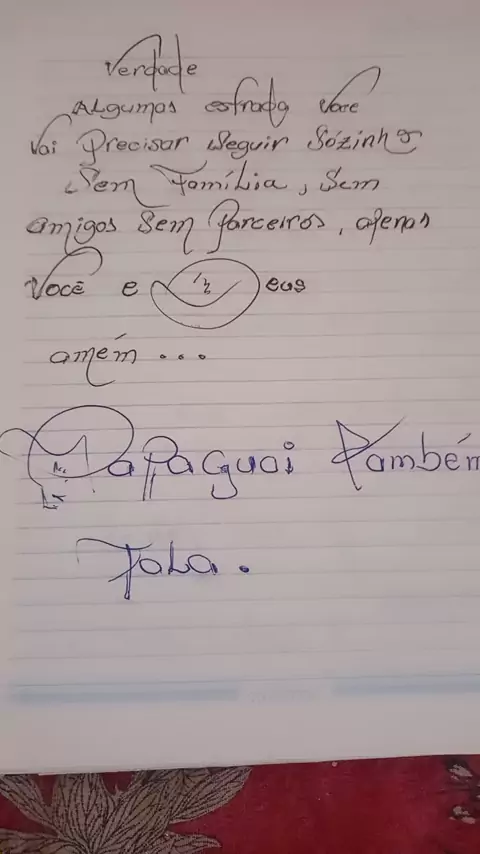 Verdade
Algumas estrada você
Vai Precisar Seguir Sozinho
Sem Família, Sem
amigos Sem Parceiros, apenas
Você e Deus
amém ...
Papaguai também
Fala.